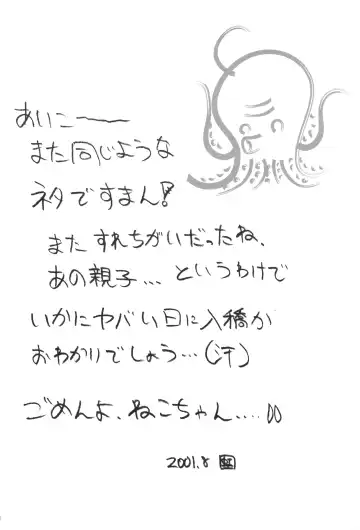 あいこ〜〜
また同じような
ネタですまん!
またすれちがいだったね、
あの親子...というわけで
いかにヤバい日に入稿か
おわかりでしょう...(汗)
ごめんよ、ねこちゃん....
2001.8